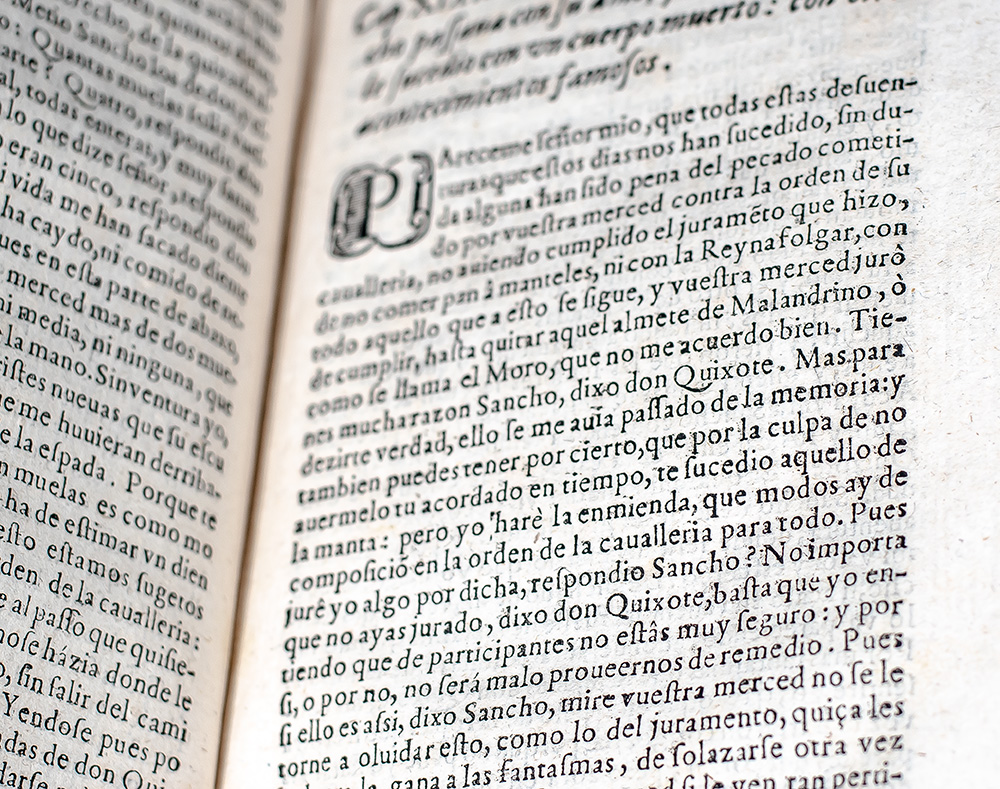 recho, de la quixada
Metio Sancho los dedos, y
o: Quantas muelas solia
arte? Quatro, respondio don
al, todas enteras, y muy sanas.
lo que dize señor, respondio
o eran cinco, respondio don
i vida me han sacado diente
ha caydo, ni comido de ne-
ues en esta parte de abaxo,
merced mas de dos mue-
ni media, ni ninguna, que
la mano. Sin ventura yo,
ristes nueuas que su escu
ue me huuieran derriba-
e la espada. Porque te
n muelas es como mo
ha de estimar vn dien
esto estamos sugetos
den de la caualleria:
e al passo que quisie-
nose házia donde le
o, sin salir del cami
Yendose pues po
adas de don Qui
Cap. XIX
cho passaua con su amo,
le sucedio con vn cuerpo muerto: con
acontecimientos famosos.
PAreceme señor mio, que todas estas desuen-
turas que estos dias nos han sucedido, sin du-
da alguna han sido pena del pecado cometi-
do por vuestra merced contra la orden de su
caualleria, no auiendo cumplido el juramẽto que hizo,
de no comer pan à manteles, ni con la Reyna folgar, con
todo aquello que a esto se sigue, y vuestra merced jurô
de cumplir, hasta quitar aquel almete de Malandrino, ò
como se llama el Moro, que no me acuerdo bien. Tie-
nes mucha razon Sancho, dixo don Quixote. Mas para
dezirte verdad, ello se me auia passado de la memoria: y
tambien puedes tener por cierto, que por la culpa de no
auermelo tu acordado en tiempo, te sucedio aquello de
la manta: pero yo harè la enmienda, que modos ay de
composiciõ en la orden de la caualleria para todo. Pues
jurê yo algo por dicha, respondio Sancho? No importa
que no ayas jurado, dixo don Quixote, basta que yo en-
tiendo que de participantes no estâs muy seguro: y por
si, o por no, no será malo proueernos de remedio. Pues
si ello es assi, dixo Sancho, mire vuestra merced no se le
torne a oluidar esto, como lo del juramento, quiça les
la gana a las fantasmas, de solazarse otra vez
si le ven tan perti-